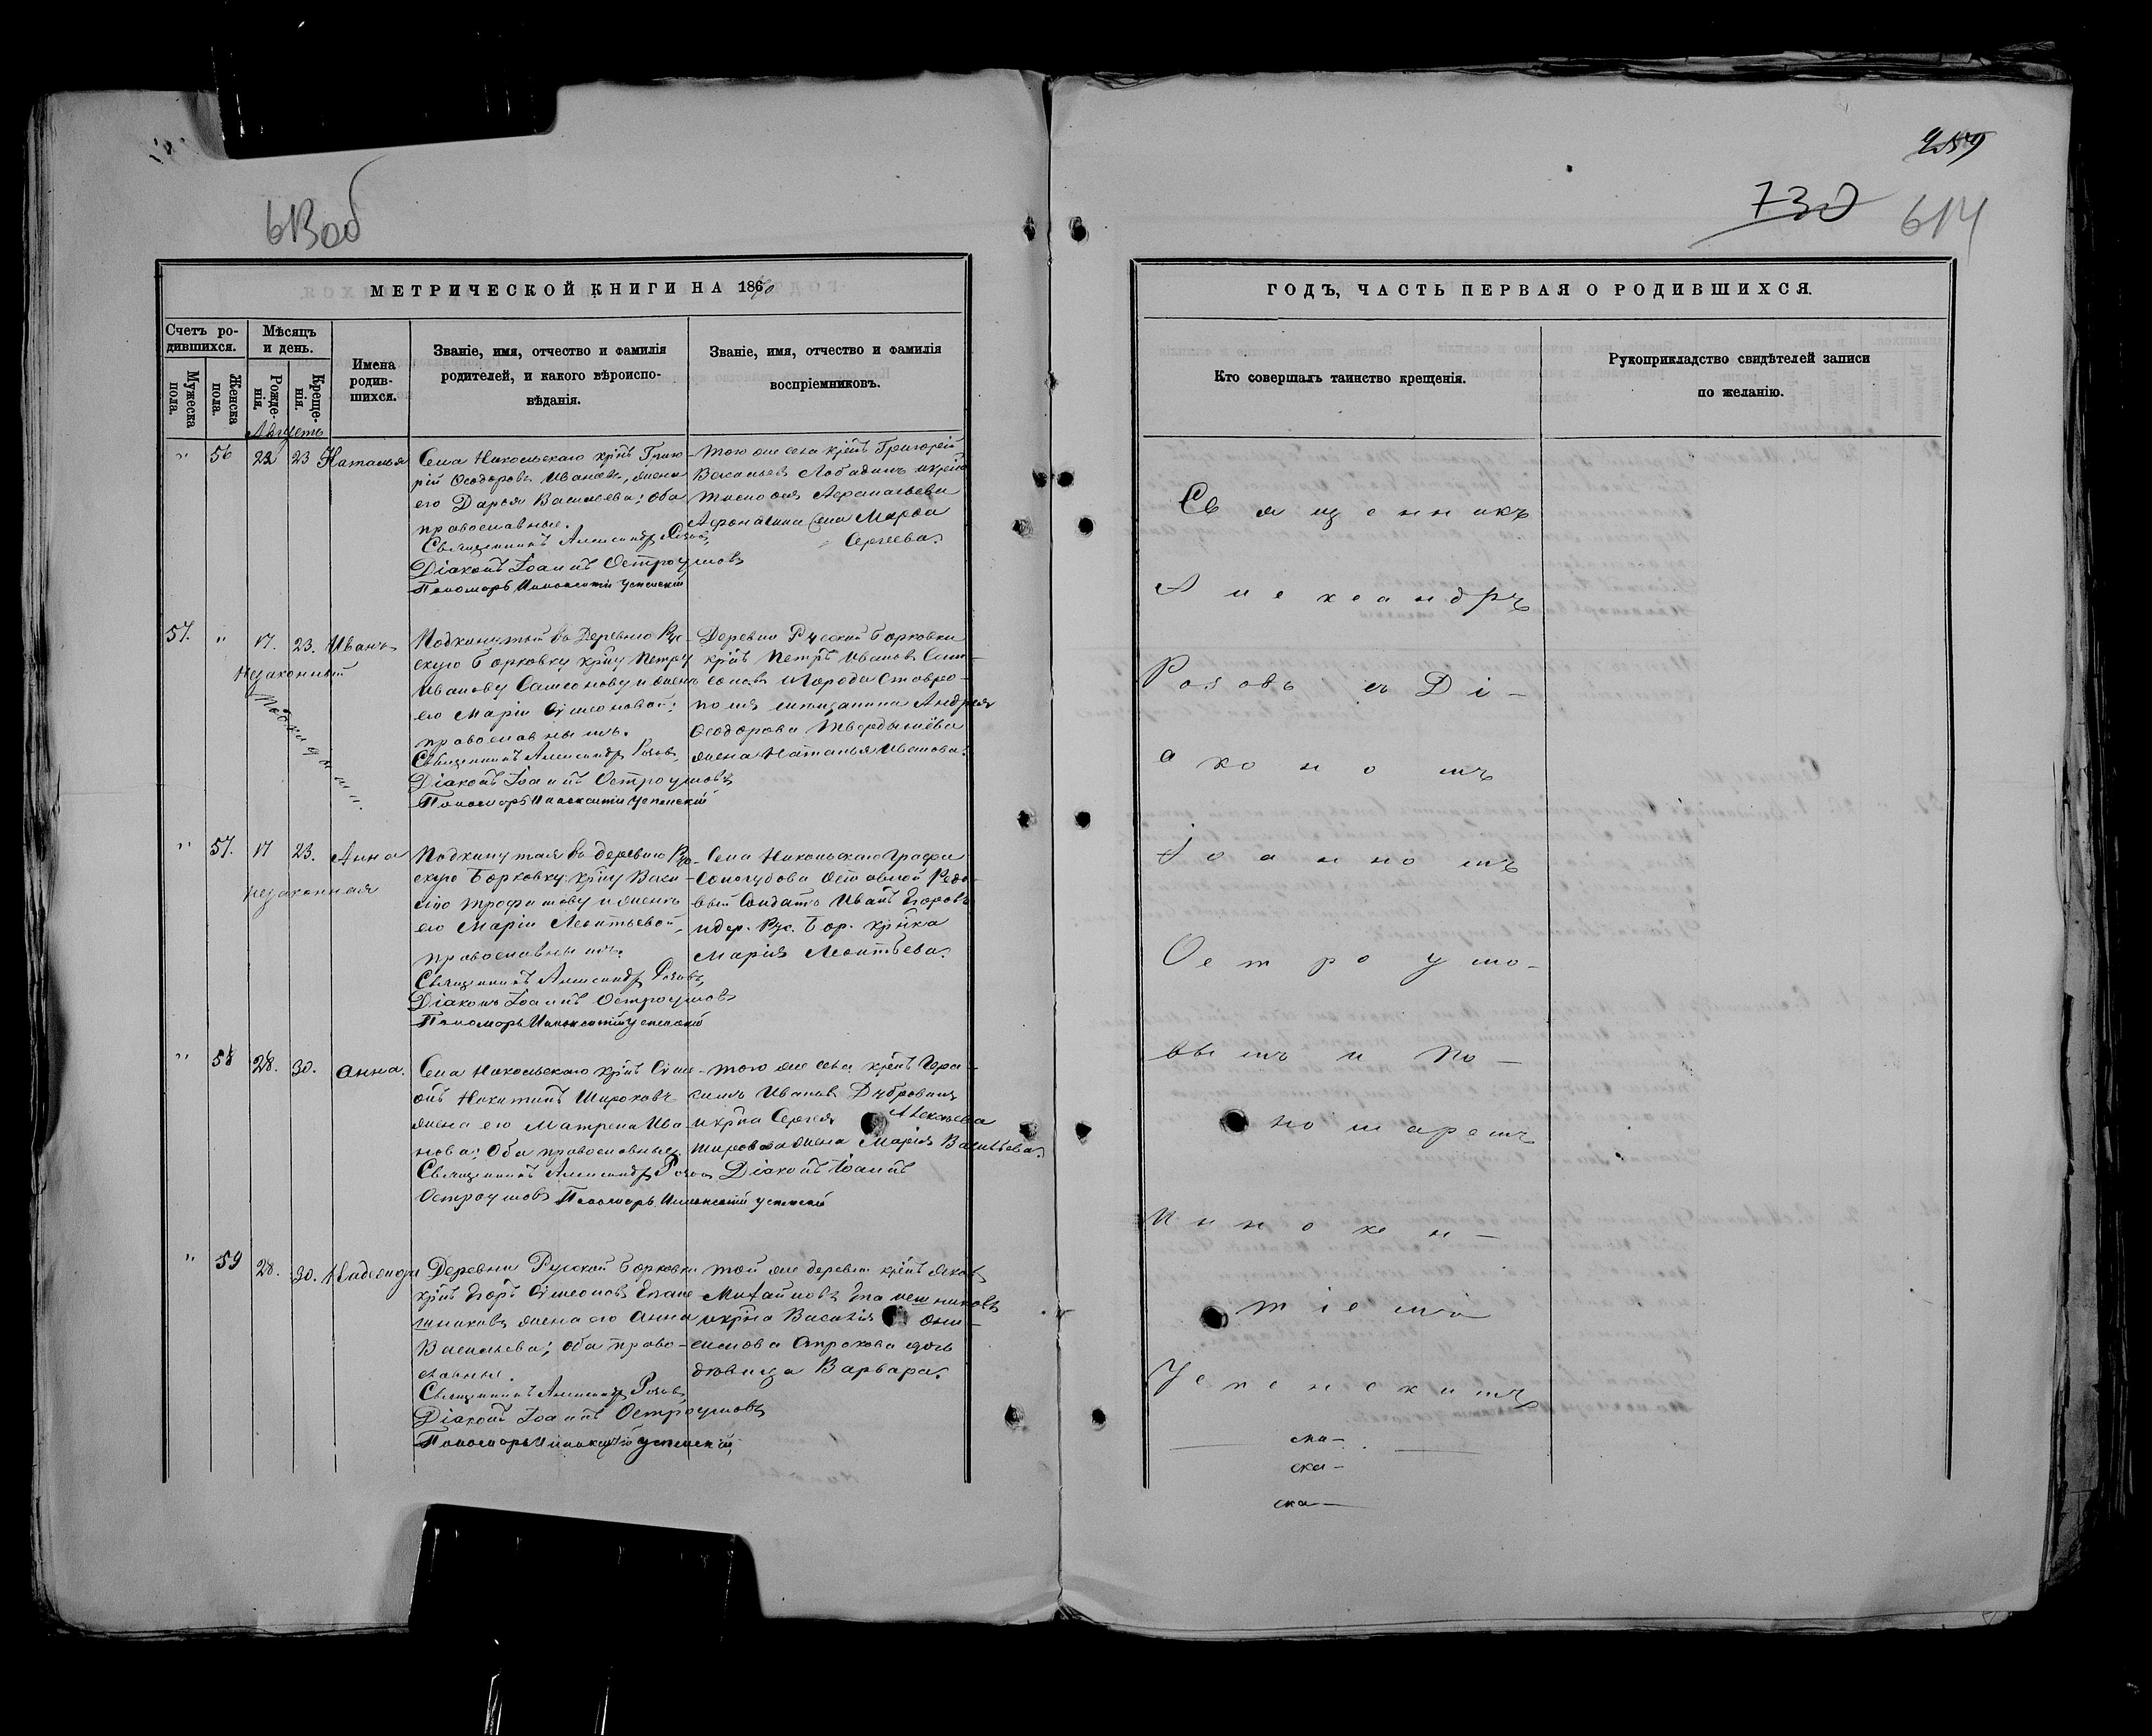 613 об
МЕТРИЧЕСКОЙ КНИГИ НА 1860
Счетъ родившихся.
Мѣсяцъ и день.
Имена родившихся.
Званіе, имя, отчество и фамилія родителей, и какого вѣроисповѣданія.
Званіе, имя, отчество и фамилія воспріемниковъ.
Мужеска пола.
Женска пола.
Рожденія.
Крещенія.
Августъ
" 56 22 23 Наталья
Села Никольскаго крнъ Григо-
рій Ѳеодоровъ Ивановъ, жена
его Дарья Васильева; оба
православные.
Священникъ Александръ Розовъ,
Діаконъ Іоаннъ Остроумовъ
Пономарь Иннокентій Успенскій
того же села крнъ Григорій
Васильевъ Лобадинъ
Сергеева.
57. " 17. 23. Иванъ
Незаконный
Подкинутый въ деревню Рус-
скую Борковку крну Петру
Иванову Самсонову и женѣ
его Маріи Симеоновой;
православнымъ.
Священникъ Александръ Розовъ,
Діаконъ Іоаннъ Остроумовъ
Пономарь Иннокентій Успенскій
Деревни Русской Борковки
крнъ Петръ Ивановъ Сам-
соновъ и города Ставро-
поля мещанина Андрея
Ѳеодорова Твердышёва
жена Наталья Иванова.
" 57. 17 23. Анна
незаконная
Подкинутая въ деревню Рус-
скую Борковку крну Васи-
лію Трофимову и женѣ
его Маріи Леонтьевой,
православнымъ.
Священникъ Александръ Розовъ,
Діаконъ Іоаннъ Остроумовъ
Пономарь Иннокентій Успенскій
Села Никольскаго Графа
Сологубова
вый Солдатъ Иванъ Егоровъ
и дер. Рус. Бор. крнка
Марія Леонтьева.
" 58 28. 30. Анна.
Села Никольскаго крнъ Симе-
онъ Никитинъ Широковъ
жена его Матрена Ива-
нова; оба православные.
Священникъ Александръ Розовъ Діаконъ Іоаннъ
Остроумовъ Пономарь Иннокентій Успенскій
того же села крнъ Гера-
симъ Ивановъ Дубровинъ
и крна Сергея Алексѣева
жена Марія Васильева.
" 59 28. 30.
Деревни Русской Борковки
крнъ Егоръ Симеоновъ
жена его Анна
Васильева; оба право-
славные.
Священникъ Александръ Розовъ
Діаконъ Іоаннъ Остроумовъ
Пономарь Иннокентій Успенскій
той же деревни крнъ Яковъ
Михайловъ
и крна Василія Они-
симова дочь
дѣвица Варвара.
259
730
614
ГОДЪ, ЧАСТЬ ПЕРВАЯ О РОДИВШИХСЯ.
Кто совершалъ таинство крещенія.
Рукоприкладство свидѣтелей записи по желанію.
Священникъ
Александръ
Розовъ съ Ді-
акономъ
Іоанномъ
Остроумо-
вымъ и По-
номаремъ
Инокен-
тіемъ
Успенскимъ